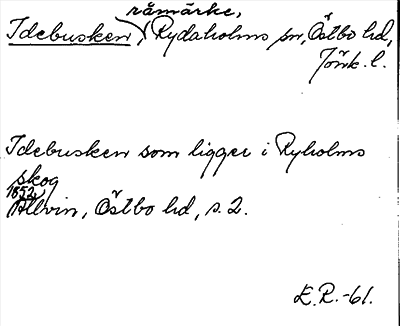 råmärke,
Idebusken, Rydaholms sn, Östbo hd,
Jönk. l.
Idebusken som ligger i Ryholms
skog
1852
Allvin, Östbo hd, s. 2.
E.R.-61.